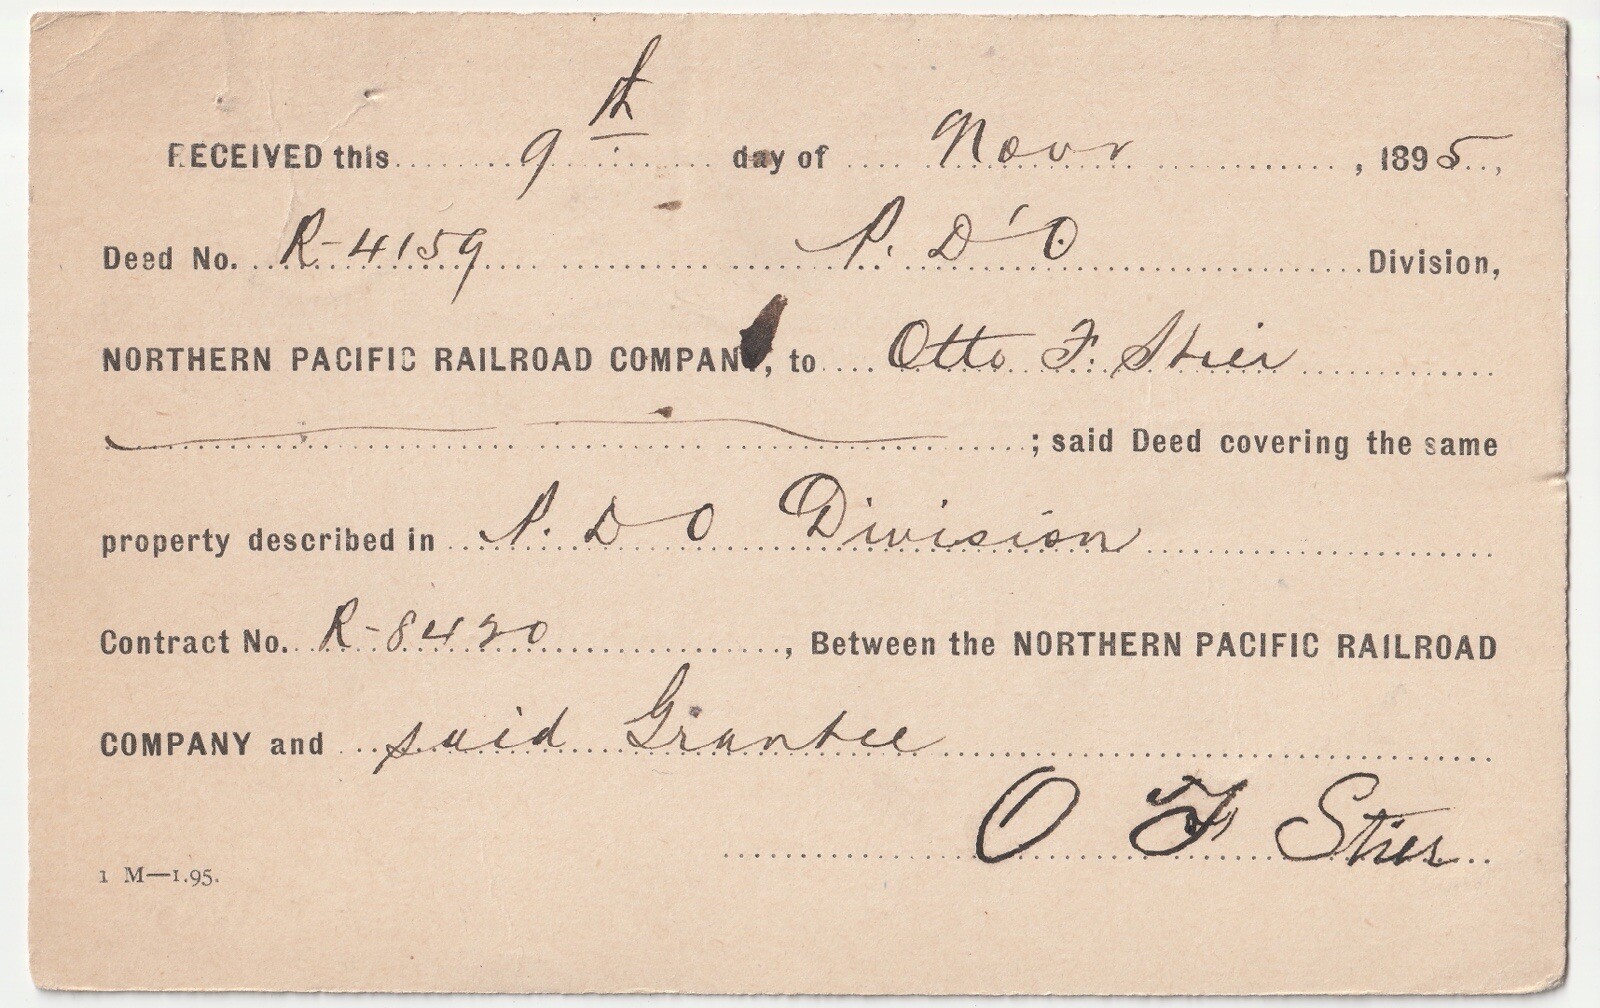 RECEIVED this 9th day of Novr, 1895,
Deed No. R-4159 P. D'O Division,
NORTHERN PACIFIC RAILROAD COMPANY, to Otto F. Stier
; said Deed covering the same
property described in P. D O Division
Contract No. R-8420, Between the NORTHERN PACIFIC RAILROAD
COMPANY and said Grantee
O F Stier
1 M—1.95.